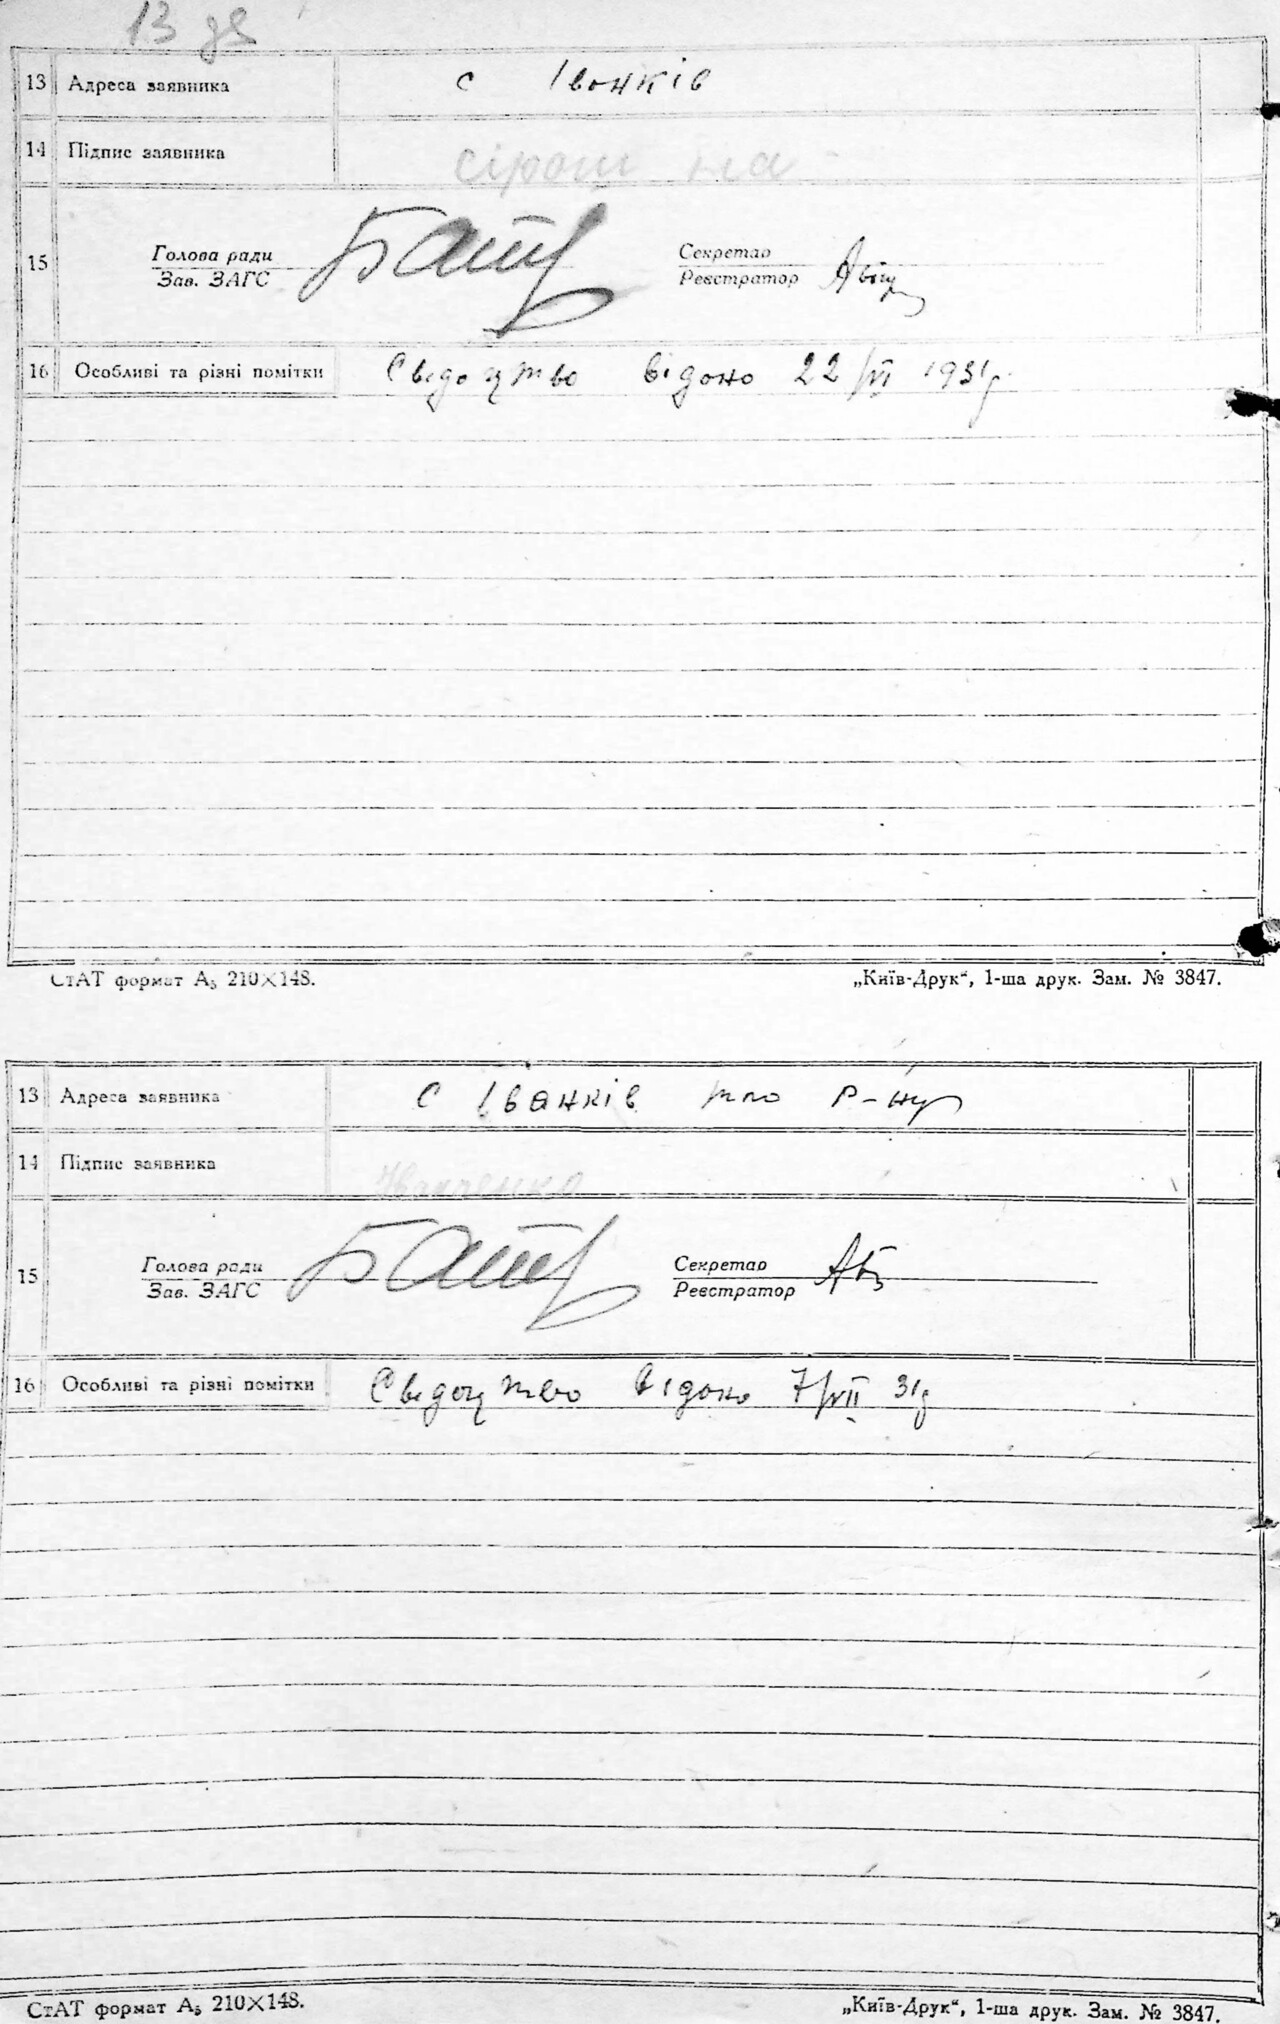 13 зв
13 Адреса заявника с Іванків
14 Підпис заявника
15 Голова ради Секретар
Зав. ЗАГС Реєстратор
16 Особливі та різні помітки Свідоцтво відоно 22/VI 1931р.
СтАТ формат А₅ 210×148. „Київ-Друк“, 1-ша друк. Зам. № 3847.
13 Адреса заявника с Іванків того р-ну
14 Підпис заявника Іванченко
15 Голова ради Секретар
Зав. ЗАГС Реєстратор
16 Особливі та різні помітки Свідоцтво відоно 7/VII 31р
СтАТ формат А₅ 210×148. „Київ-Друк“, 1-ша друк. Зам. № 3847.